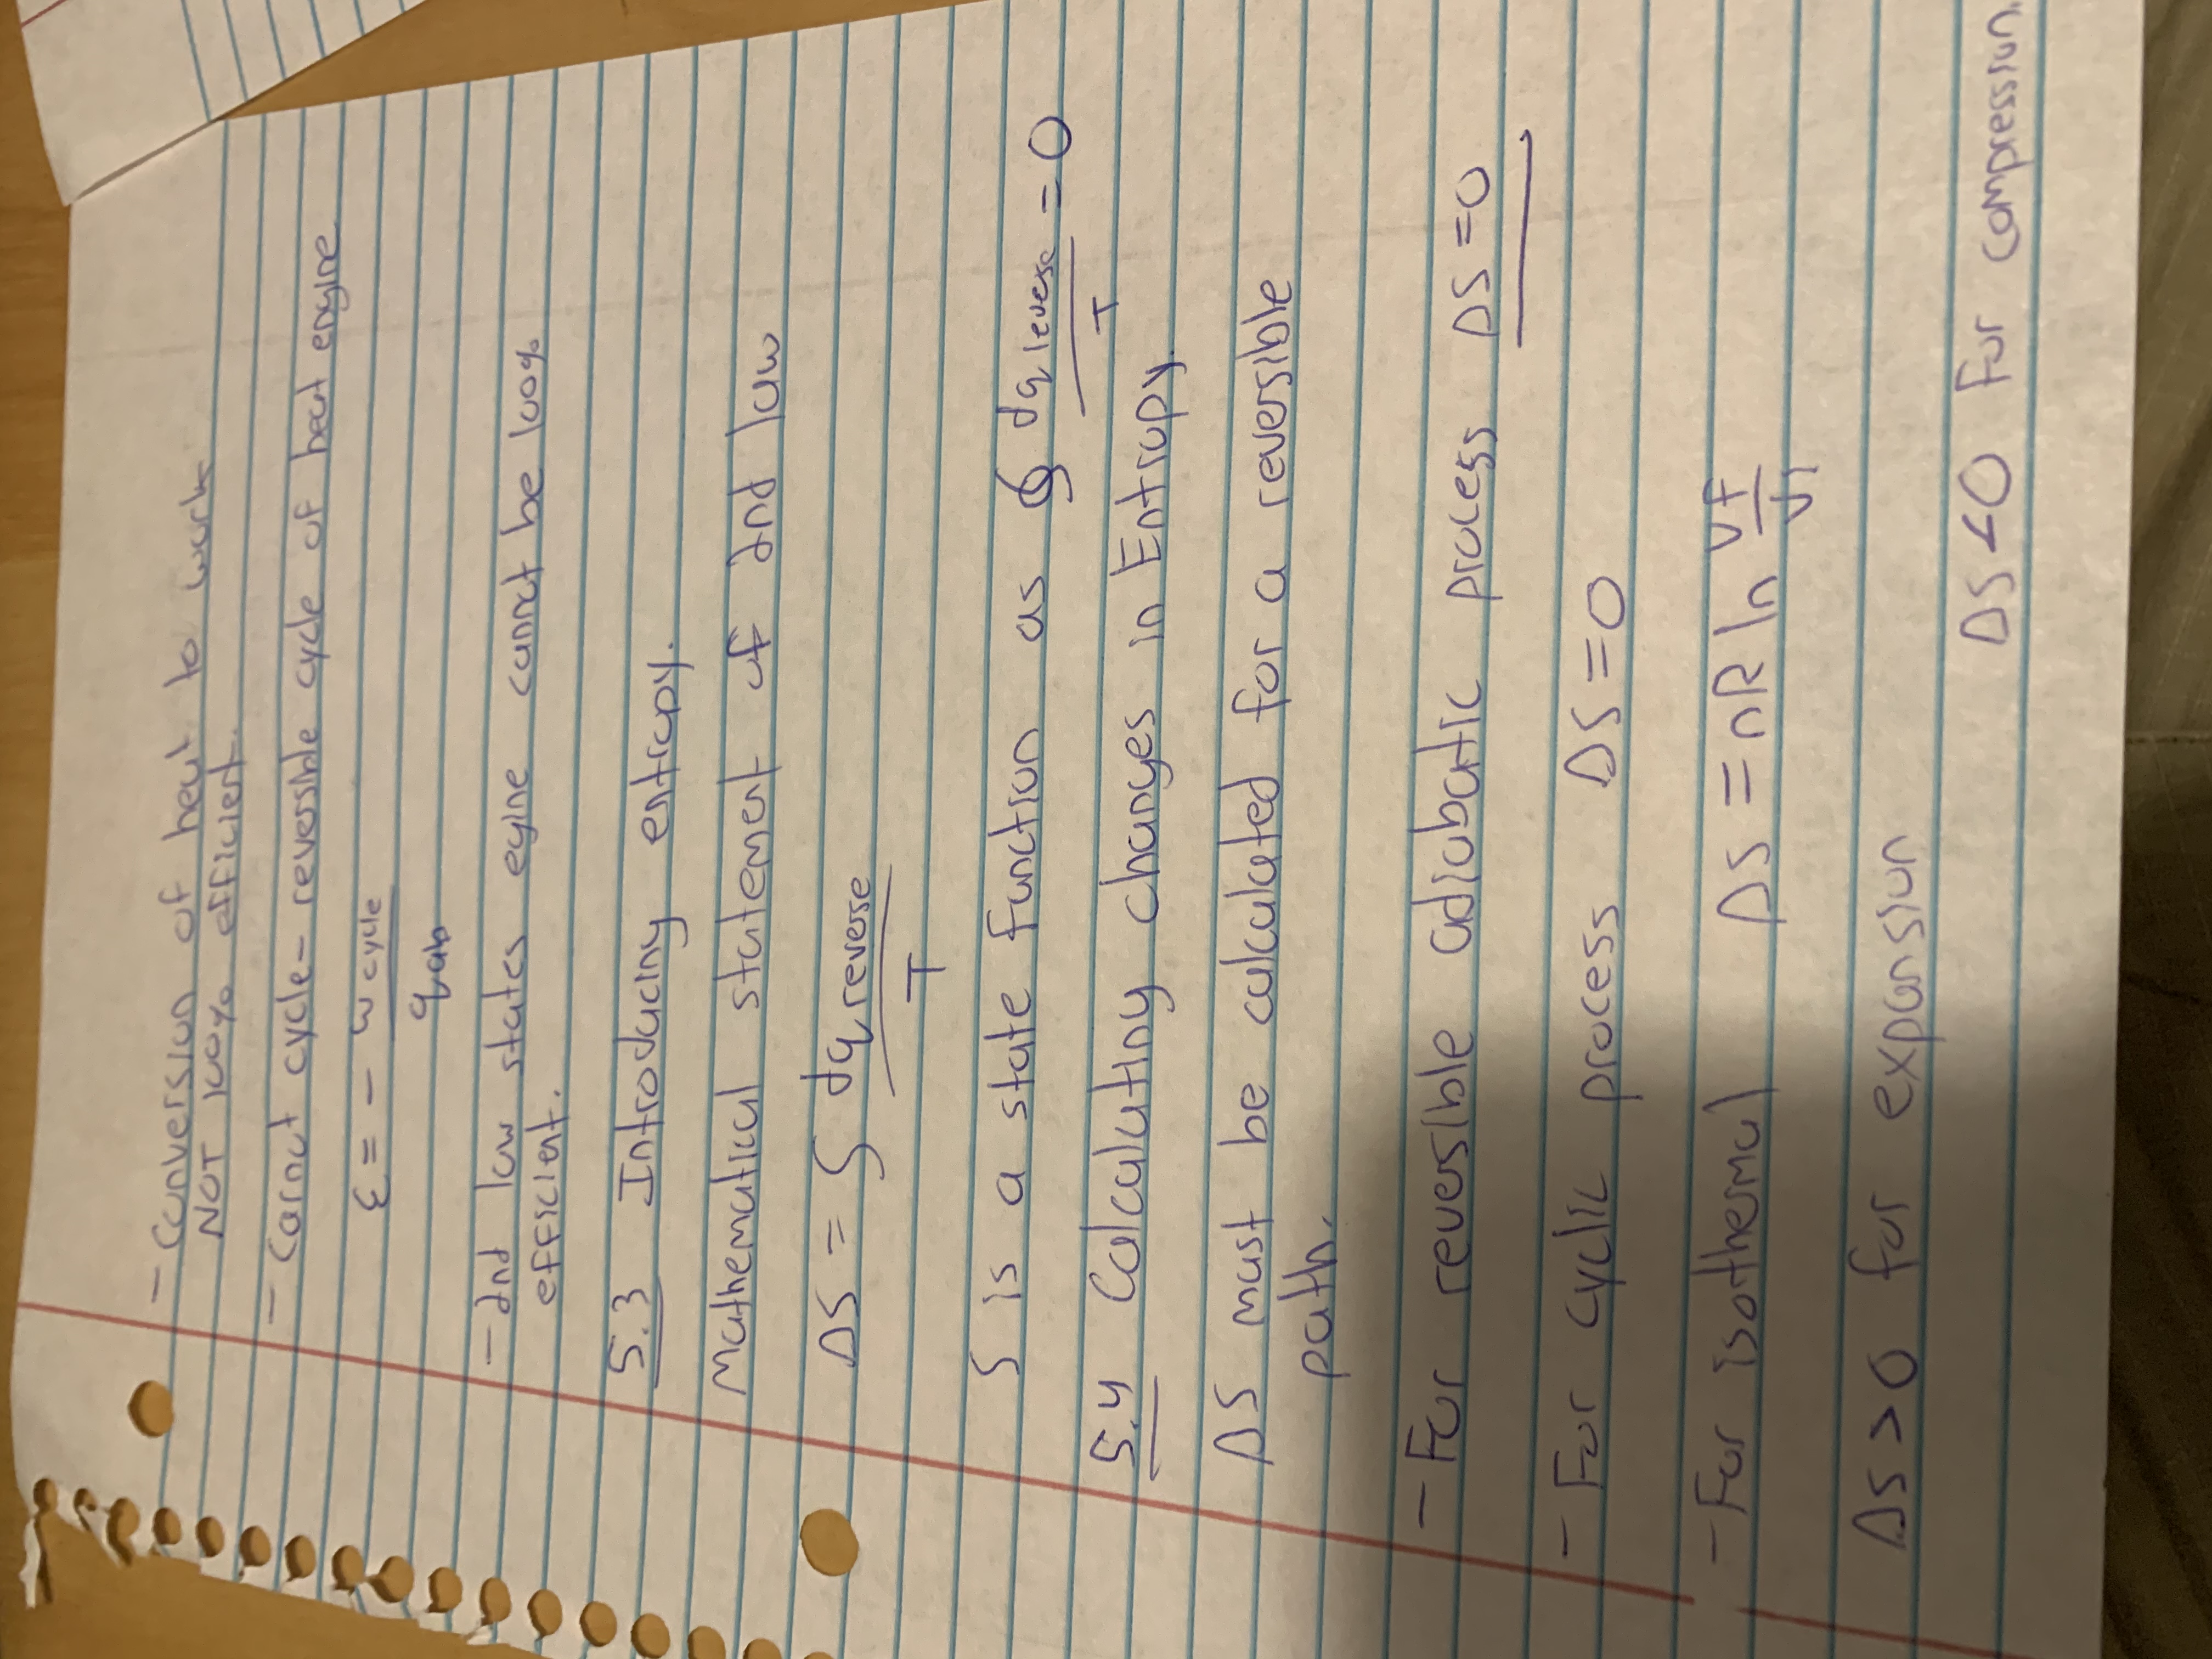 - Conversion of heat to work
NOT 100% efficient.
- Carnot cycle - reversible cycle of heat engine
ε = - w cycle / q ab
- 2nd law states egine cannot be 100%
efficient.
5.3 Introducing entropy.
Mathematical statement of 2nd law
ΔS = ∫ dq reverse / T
S is a state function as ∮ dq reverse / T = 0
5.4 Calculating changes in Entropy.
ΔS must be calculated for a reversible
path.
- For reversible adiabatic process ΔS = 0
- For cyclic process ΔS = 0
- For isothermal ΔS = nR ln Vf / Vi
ΔS > 0 for expansion
ΔS < 0 for compression.